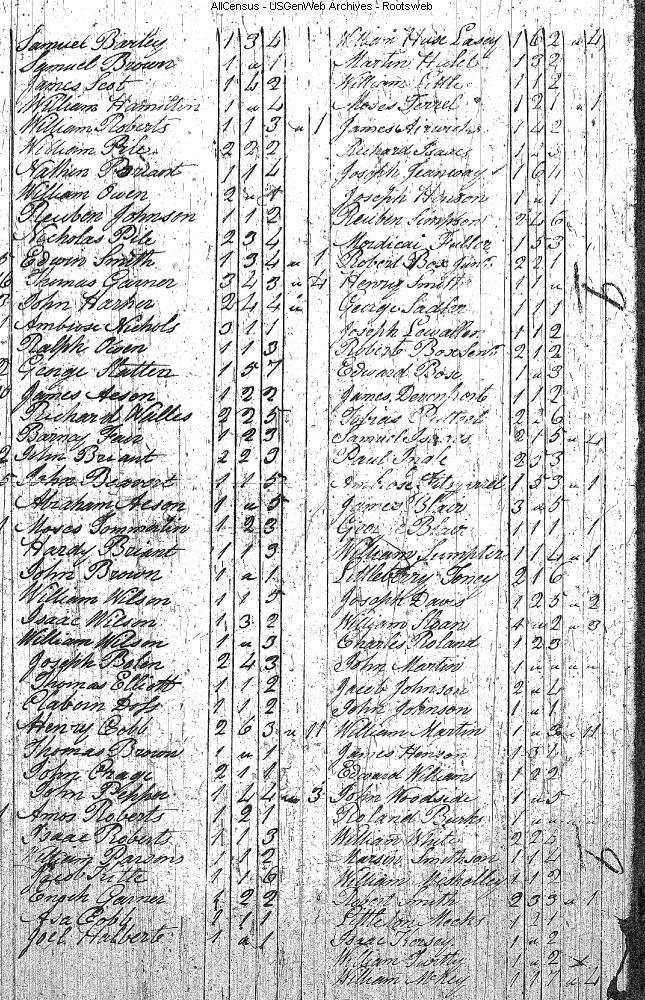 AllCensus - USGenWeb Archives - Rootsweb
Samuel Barley 1 3 4
Samuel Brown 1 " 1
James Scot 1 4 2
William Hamilton 1 " 4
William Roberts 1 1 3 " 1
William Pile 2 2 2
Nathen Briant 1 1 4
William Owen 2 "
Reuben Johnson 1 1 2
Nicholas Pile 2 3 4
Edwin Smith 1 3 4 " 1
Thomas Garner 3 4 3 " 4
John Harper 2 4 4 "
Ambrose Nichols 3 1 1
Ralph Owen 1 1 3
George Hatten 1 5 7
James Acson 1 2 2
Richard Willes 2 2 5
Barney Fair 1 2 3
John Briant 2 2 3
John Beavert 1 1 5
Abraham Acson 1 " 5
Moses Tommatin 1 2 3
Hardy Briant 1 1 3
John Brown 1 " 1
William Wilson 1 1 5
Isaac Wilson 1 3 2
William Wilson 1 " 3
Joseph Bolen 2 4 3
Thomas Elliott 1 1 2
Claborn Doss 1 1 2
Henry Cobb 2 6 3 " 11
Thomas Brown 1 " 1
John Crage 2 1 1
John Peppa 1 4 4 " 3
Amos Roberts 1 2 1
Isaac Roberts 1 1 3
William Parsons 1 1 2
Jacob Tuttle 1 1 6
Enoch Garner 1 2 2
Asa Cobb 1 1 1
Joel Halbert 1 " 1
William Huse Casey 1 6 2 " 4
Martin Hubl 1 3 2
William Little 1 1 2
Moses Terrel 1 2 1 " 1
James 1 4 2
Richard Isaacs 1 " 3
Joseph Jeanway 1 6 4
Joseph Hewson 1 " 1
Reuben Simpson 2 4 6
Mordicai Fuller 1 5 3
Robert Box Junr. 2 2 1
Henry Smith 1 1 "
George Sadler 1 1 1
Joseph Lewallen 1 1 2
Robert Box Senr. 2 1 2
Edward Box 1 " 3
James Devenport 1 1 2
2 " 6
Samuel 2 1 5 " 4
Paul Ingle 2 5 3
Ambrose Fitzgerald 1 5 3 " 1
James Blair 3 " 5
George Blair 1 1 1 1
William Sumpter 1 1 4 " 1
Littleberry Toney 2 1 6
Joseph Davis 1 2 5 " 2
William Sloans 4 " 2 " 3
Charles Roland 1 2 3
John Martin 1 " " " "
Jacob Johnson 2 " 4
John Johnson 1 " 1
William Martin 1 " 3 " 11
James Henson 1 3 1
Edward Williams 1 2 2
John Woodside 1 " 5
Roland Burks 1 " " " "
William White 2 2 4
Marsin Smithson 1 1 4
William 1 1 2
Robert Smith 2 3 3 " 1
Littleton Meeks 1 1 1
Isaac Rorsey 1 " 2
William 1 " 2
William McKey 1 1 7 " 4